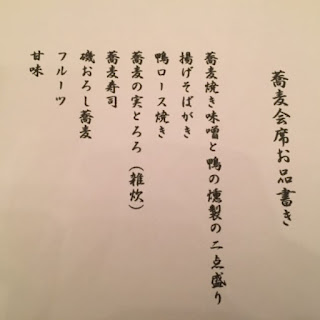 蕎麦会席お品書き
蕎麦焼き味噌と鴨の燻製の二点盛り
揚げそばがき
鴨ロース焼き
蕎麦の実とろろ（雑炊）
蕎麦寿司
磯おろし蕎麦
フルーツ
甘味